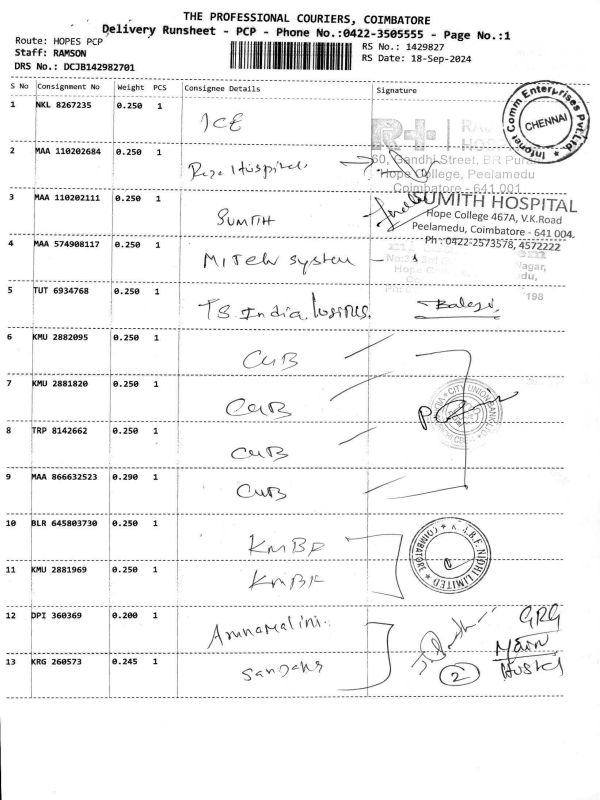 THE PROFESSIONAL COURIERS, COIMBATORE
Delivery Runsheet - PCP - Phone No.:0422-3505555 - Page No.:1
Route: HOPES PCP
Staff: RAMSON
DRS No.: DCJB142982701
RS No.: 1429827
RS Date: 18-Sep-2024
S No Consignment No Weight PCS Consignee Details Signature
1 NKL 8267235 0.250 1 ICE
Infonet Comm Enterprises Pvt.Ltd. * CHENNAI
2 MAA 110202684 0.250 1 Rex Hospital
R+
60, Gandhi Street, BR Pura
Hope College, Peelamedu
Coimbatore - 641 001
3 MAA 110202111 0.250 1 SUMITH
SUMITH HOSPITAL
Hope College 467A, V.K.Road
Peelamedu, Coimbatore - 641 004.
Ph : 0422-2573578, 4572222
4 MAA 574908117 0.250 1 MITech System
5 TUT 6934768 0.250 1 TS India Balaji
6 KMU 2882095 0.250 1 CUB
7 KMU 2881820 0.250 1 CUB
CITY UNION BANK
8 TRP 8142662 0.250 1 CUB
9 MAA 866632523 0.290 1 CUB
10 BLR 645803730 0.250 1 KMBF
K.M.B.F. NIDHI LIMITED * COIMBATORE
11 KMU 2881969 0.250 1 KMBF
12 DPI 360369 0.200 1 Arunamalini
GRG
Main
13 KRG 260573 0.245 1
2